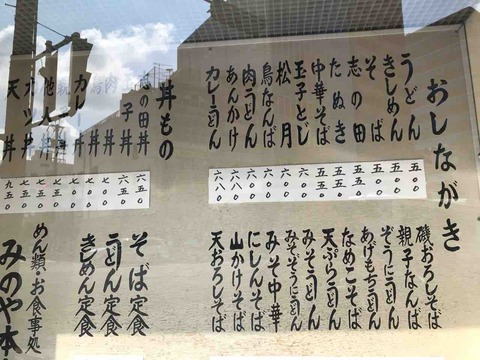 おしながき
うどん 五〇〇
きしめん 五〇〇
そば 五〇〇
志の田 五五〇
たぬき 五五〇
中華そば 五五〇
玉子とじ 六〇〇
松月 六〇〇
鳥なんば 六〇〇
肉うどん 六八〇
あんかけ 六八〇
カレーうどん 六八〇
磯おろしそば
親子なんば
ぞうにうどん
あげもちうどん
なめこそば
天ぷらうどん
みそうどん
みそぞうにうどん
みそ中華
にしんそば
山かけそば
天おろしそば
丼もの
志の田丼 六五〇
子丼 六五〇
丼 七〇〇
カレ 丼
他人丼 七五〇
丼 七五〇
天丼 九五〇
そば定食
うどん定食
きしめん定食
めん類・お食事処
みのや本